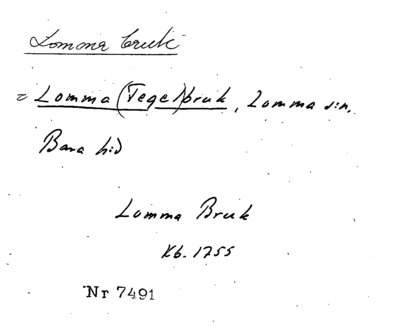 Lomma Bruk
= Lomma (Tegel)bruk, Lomma sn,
Bara hd
Lomma Bruk
Kb. 1755
Nr 7491